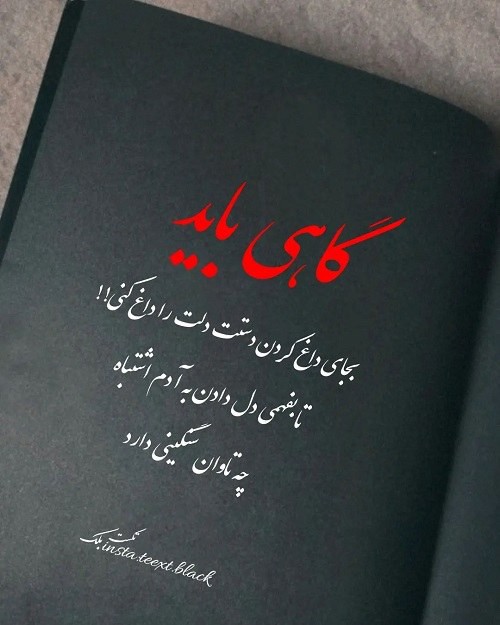 گاهی باید
بجای داغ کردن دستت دلت را داغ کنی!!
تا بفهمی دل دادن به آدم اشتباه
چه تاوان سنگینی دارد
تکست بلک
insta.teext.black